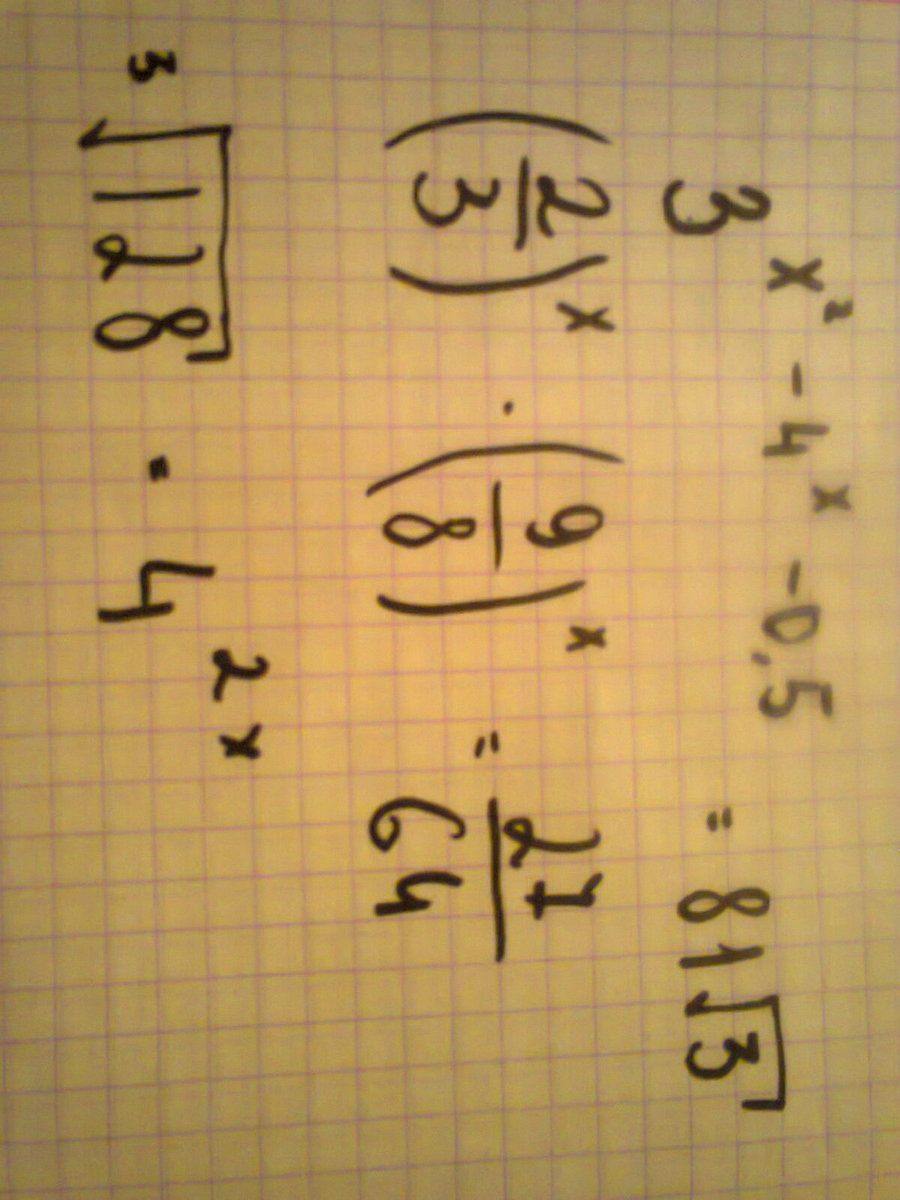 3^{x² - 4x - 0,5} = 81√3
(2/3)^x · (9/8)^x = 27/64
³√128 = 4^{2x}